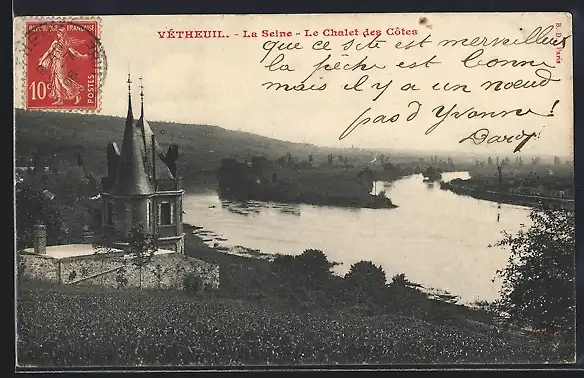 VÉTHEUIL. - La Seine - Le Chalet des Côtes
RÉPUBLIQUE FRANÇAISE
10c
POSTES
B. D. Paris
que ce site est merveilleux
la pêche est bonne
mais il y a un nœud
pas d'Yvonne!
Darcy